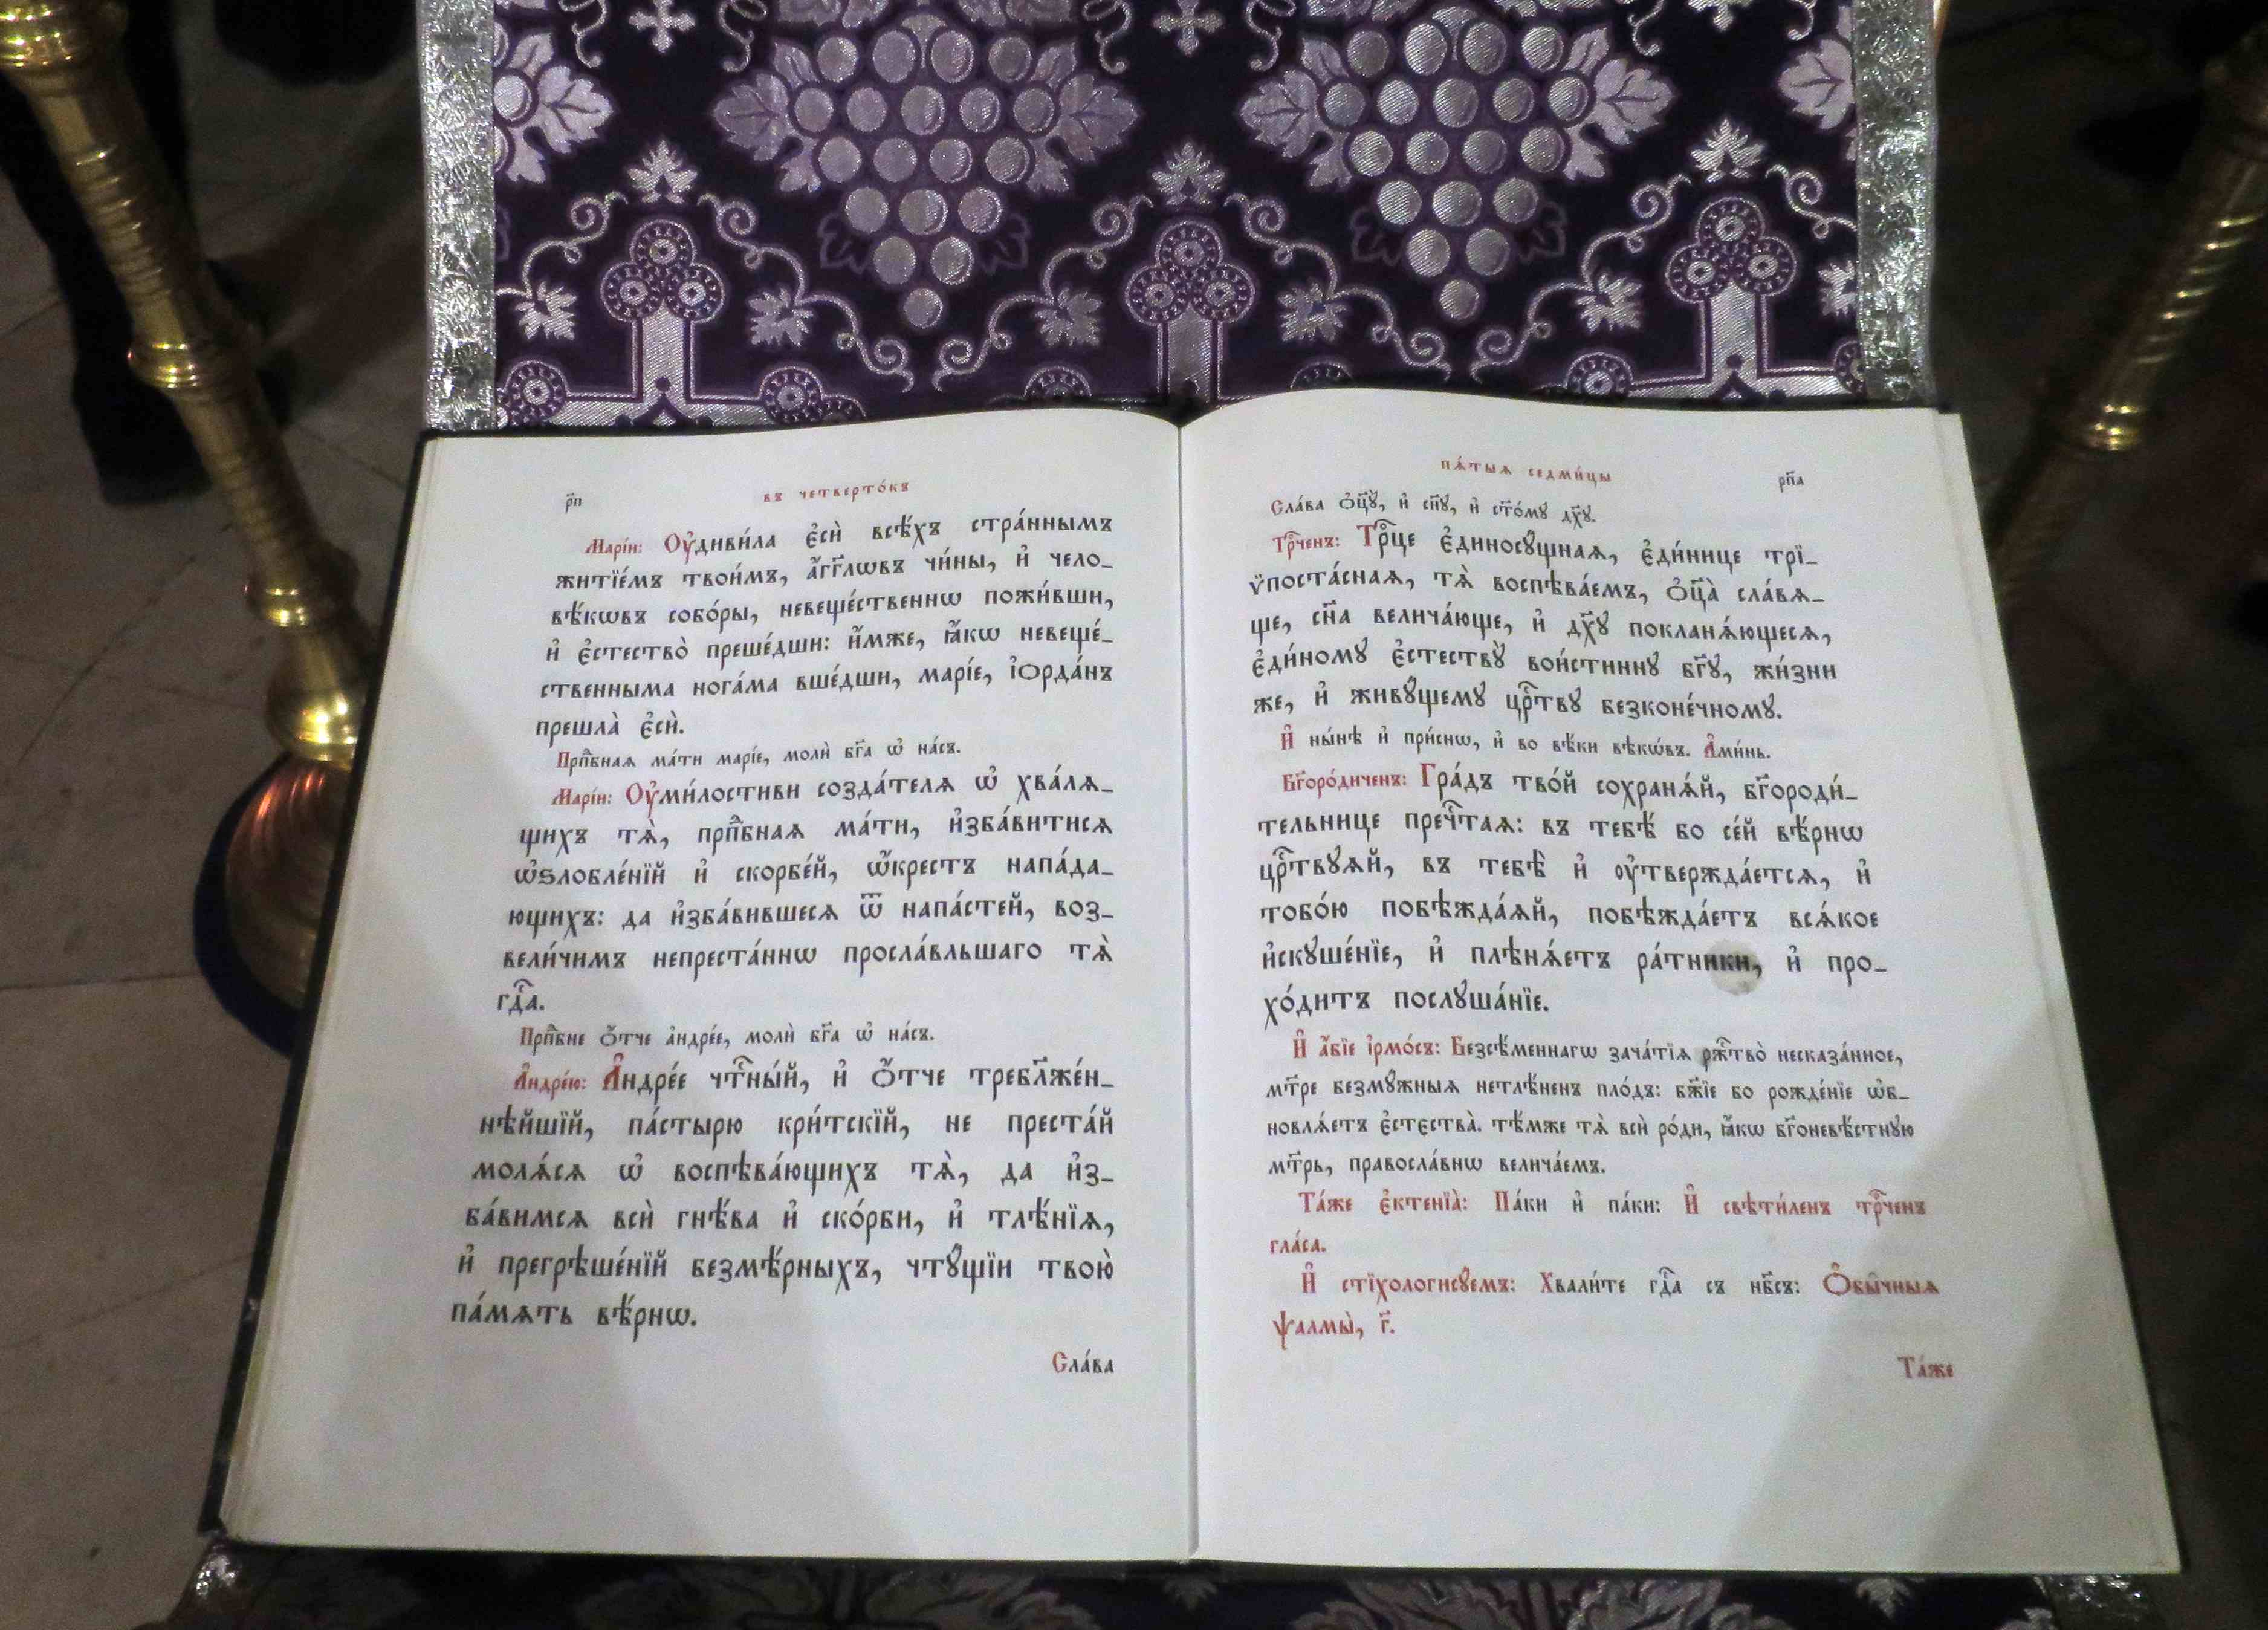 р҃п
въ четверто́къ
Марі́и: Оу҆диви́ла є҆сѝ всѣ́хъ стра́ннымъ
житїе́мъ твои́мъ, а҆́гг҃лѡвъ чи́ны, и҆ чело_
вѣ́кѡвъ собо́ры, невеще́ственнѡ пожи́вши,
и҆ є҆стество̀ преше́дши: и҆́мже, ꙗ҆́кѡ невеще́_
ственныма нога́ма вше́дши, марі́е, і҆ѻрда́нъ
прешла̀ є҆сѝ.
Прпⷣбнаѧ ма́ти марі́е, молѝ бг҃а ѡ҆ на́съ.
Марі́и: Оу҆ми́лостиви созда́телѧ ѡ҆ хва́лѧ_
щихъ тѧ̀, прпⷣбнаѧ ма́ти, и҆зба́витисѧ
ѡ҆ѕлобле́нїй и҆ скорбе́й, ѡ҆́крестъ напа́да_
ющихъ: да и҆зба́вившесѧ ѿ напа́стей, воз_
вели́чимъ непреста́ннѡ просла́вльшаго тѧ̀
гдⷭ҇а.
Прпⷣбне ѻ҆́тче а҆ндре́е, молѝ бг҃а ѡ҆ на́съ.
А҆ндре́ю: А҆ндре́е чтⷭ҇ны́й, и҆ ѻ҆́тче требл҃же́н_
нѣйшїй, па́стырю кри́тскїй, не преста́й
молѧ́сѧ ѡ҆ воспѣва́ющихъ тѧ̀, да и҆з_
ба́вимсѧ всѝ гнѣ́ва и҆ ско́рби, и҆ тлѣ́нїѧ,
и҆ прегрѣше́нїй безмѣ́рныхъ, чтꙋ́щїи твою̀
па́мѧть вѣ́рнѡ.
Сла́ва
пѧ́тыѧ седми́цы
рп҃а
Сла́ва ѻ҆ц҃ꙋ̀, и҆ сн҃ꙋ, и҆ ст҃о́мꙋ дх҃ꙋ.
Трⷪ҇ченъ: Трⷪ҇це є҆диносꙋ́щнаѧ, є҆ди́нице трі_
ѵ҆поста́снаѧ, тѧ̀ воспѣва́емъ, ѻ҆ц҃а̀ сла́вѧ_
ще, сн҃а велича́юще, и҆ дх҃ꙋ покланѧ́ющесѧ,
є҆ди́номꙋ є҆стествꙋ̀ вои́стиннꙋ бг҃ꙋ, жи́зни
же, и҆ живꙋ́щемꙋ црⷭ҇твꙋ безконе́чномꙋ.
И҆ ны́нѣ и҆ при́снѡ, и҆ во вѣ́ки вѣкѡ́въ. А҆ми́нь.
Бг҃оро́диченъ: Гра́дъ тво́й сохранѧ́й, бг҃ороди́_
тельнице пречⷭ҇таѧ: въ тебѣ́ бо се́й вѣ́рнѡ
црⷭ҇твꙋѧй, въ тебѣ̀ и҆ оу҆твержда́етсѧ, и҆
тобо́ю побѣжда́ѧй, побѣжда́етъ всѧ́кое
и҆скꙋше́нїе, и҆ плѣнѧ́етъ ра́тники, и҆ про_
хо́дитъ послꙋша́нїе.
И҆ а҆́бїе і҆рмо́съ: Безсѣ́меннагѡ зача́тїѧ ржⷭ҇тво̀ несказа́нное,
мт҃ре безмꙋ́жныѧ нетлѣ́ненъ пло́дъ: бж҃їе бо рожде́нїе ѡ҆б_
новлѧ́етъ є҆стєства̀. тѣ́мже тѧ̀ всѝ ро́ди, ꙗ҆́кѡ бг҃оневѣ́стнꙋю
мт҃рь, правосла́внѡ велича́емъ.
Та́же є҆ктенїа̀: Па́ки и҆ па́ки: И҆ свѣти́ленъ трⷪ҇ченъ
гла́са.
И҆ стїхологисꙋ́емъ: Хвали́те гдⷭ҇а съ нб҃съ: Ѻ҆бы̑чныѧ
ѱалмы̀, г҃.
Та́же